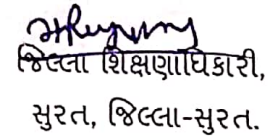 જિલ્લા શિક્ષણાધિકારી,
સુરત, જિલ્લા-સુરત.